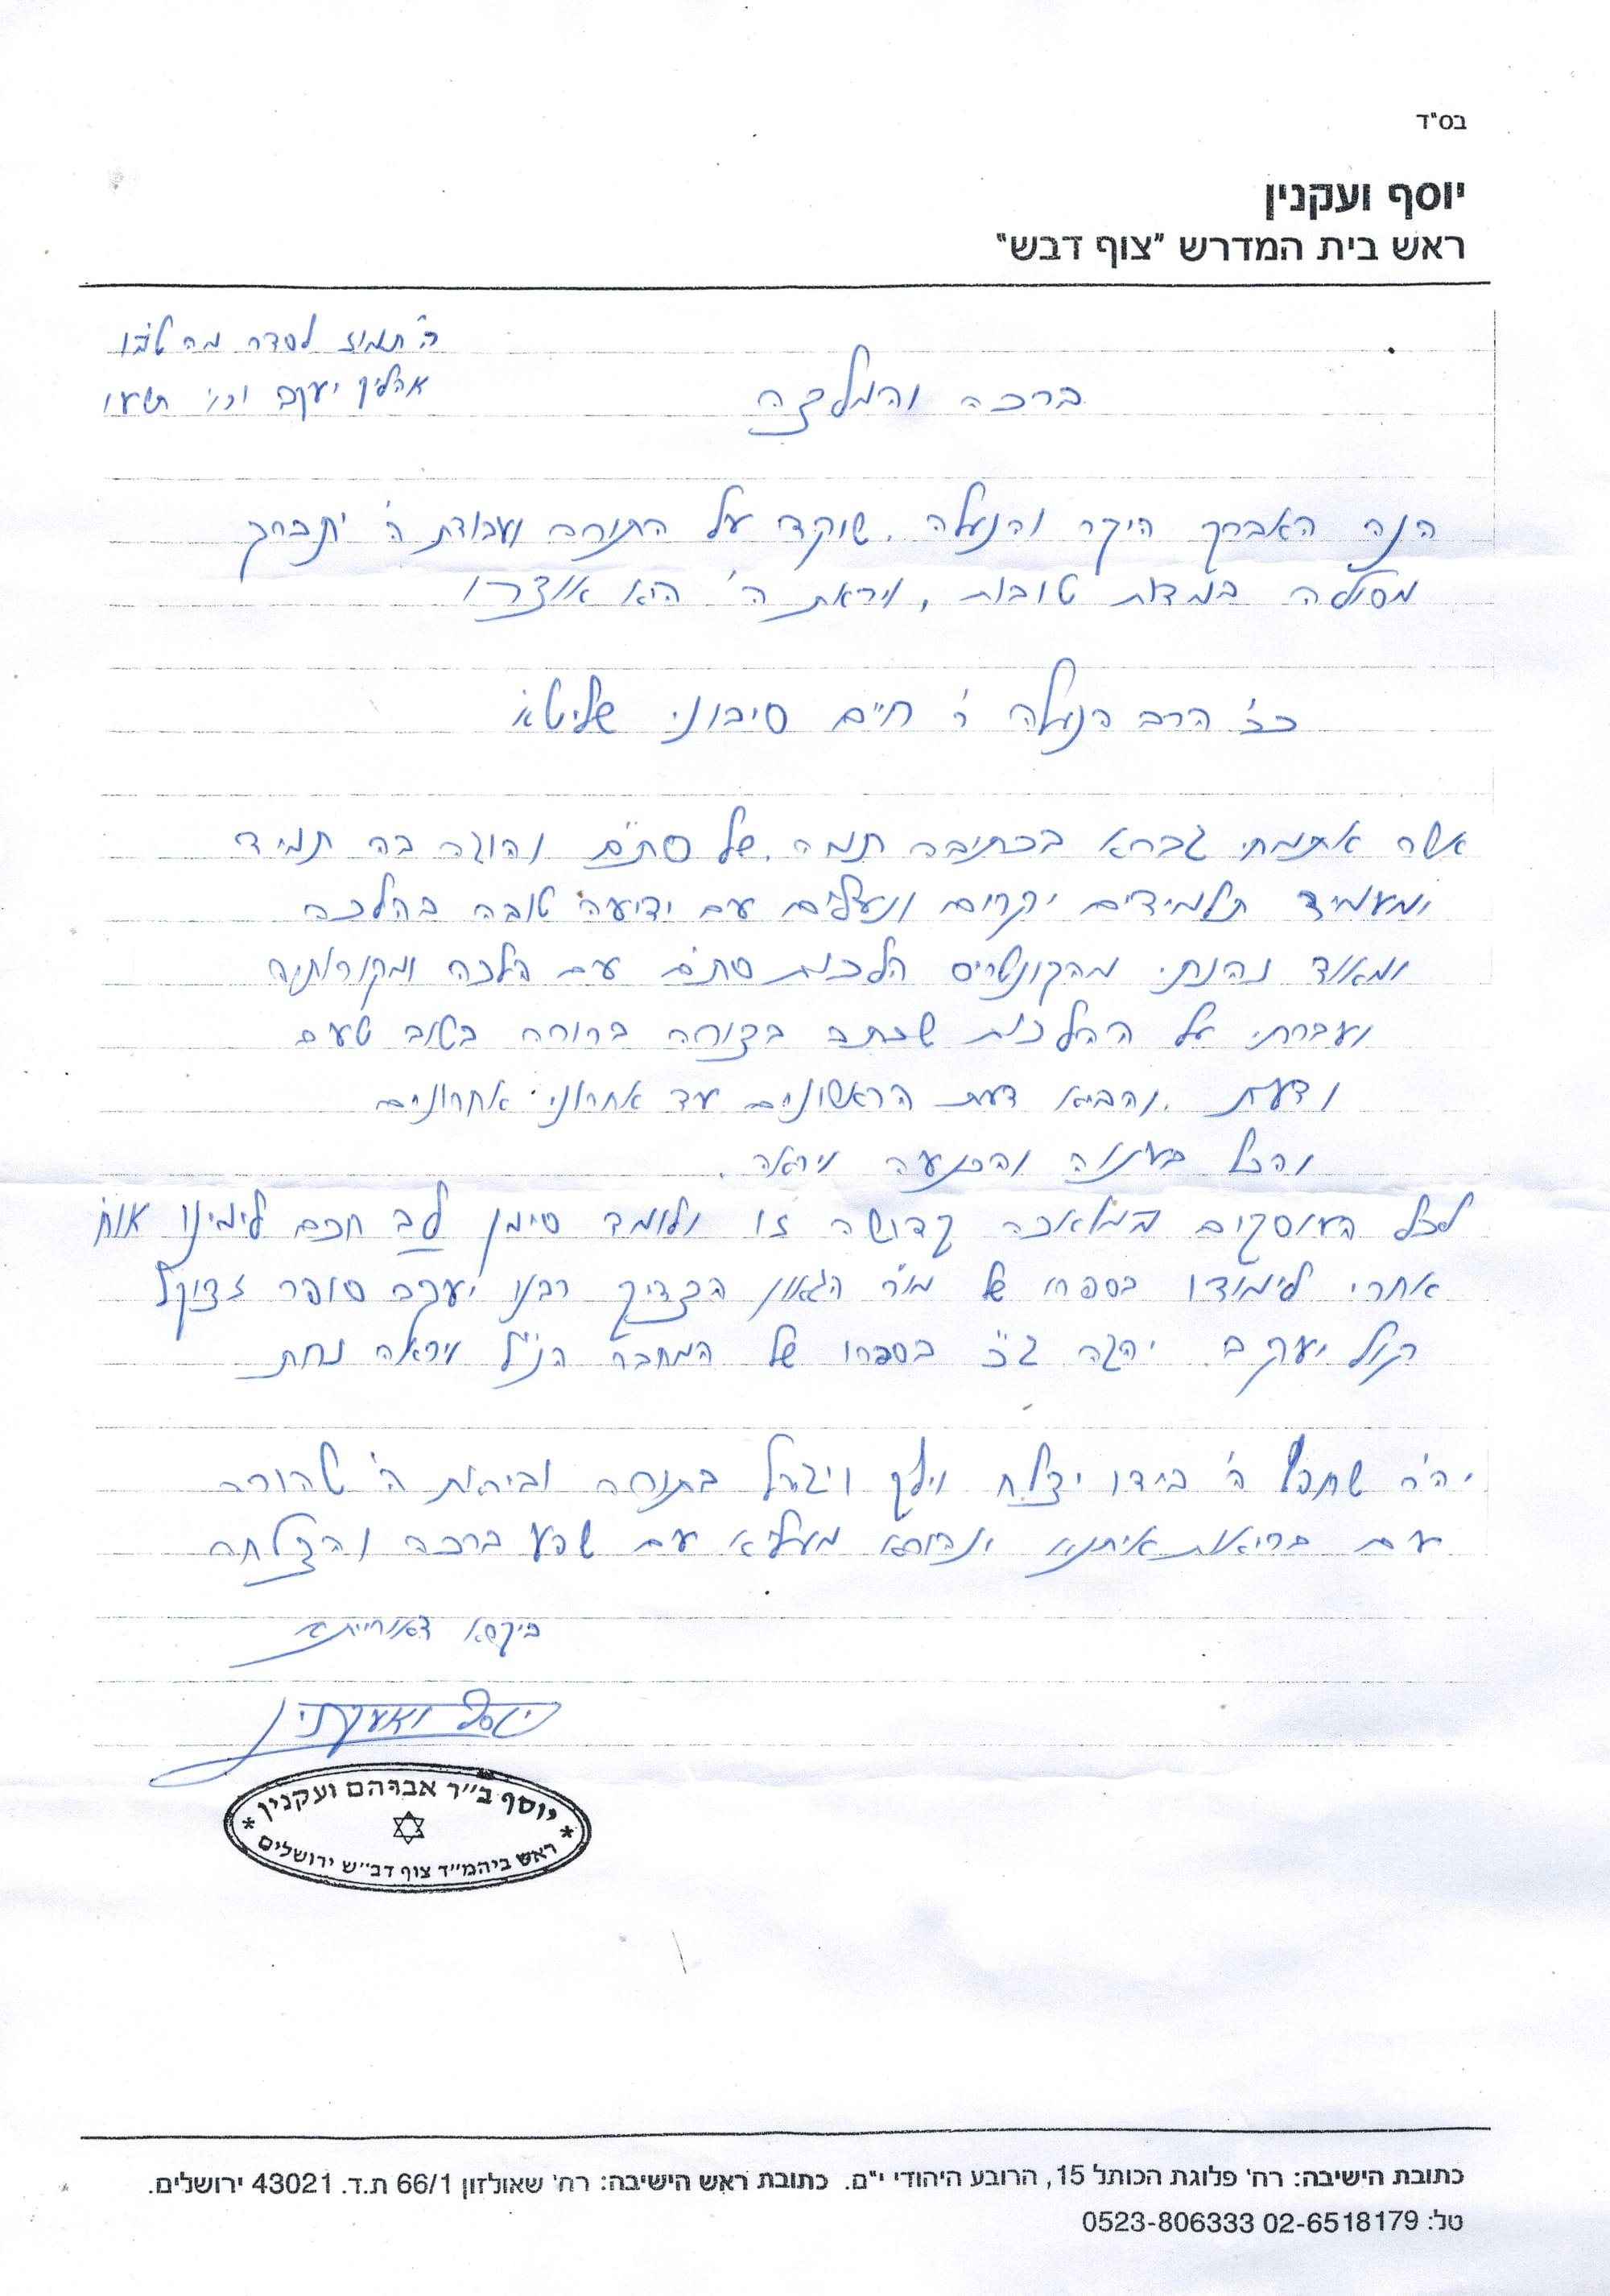 בס"ד
יוסף ועקנין
ראש בית המדרש "צוף דבש"
ה' תמוז לסדר מה טובו
אהליך יעקב תשעו
ברכה והמלצה
הנה האברך היקר והנעלה. שוקד על התורה ועבודת ה' יתברך
מסולה במדות טובות, ויראת ה' היא אוצרו
כב' הרב הנעלה ר' חיים סיבוני שליט"א
אשר אתמחי גברא בכתיבה תמה. של סת"ם והוגה בה תמיד
ומעמיד תלמידים יקרים ונעלים עם ידיעה טובה בהלכה
ומאוד נהנתי מהקונטריס הלכות סת"ם עם הלכה ומקורותיה
ועברתי על ההלכות שכתב בצורה ברורה בטוב טעם
ודעת. והביא דעת הראשונים עד אחרוני אחרונים
והכל בענוה והכנעה ויראה.
לכל העוסקים במלאכה קדושה זו ולומד סימן לב חכם לימינו
אחרי לימודו בספרו של מו"ר הגאון הצדיק רבנו יעקב סופר זצוק"ל
קול יעקב. יהגה ג"כ בספרו של המחבר הנ"ל ויראה נחת
יה"ר שחפץ ה' בידו יצלח וילך ויגדל בתורה וביראת ה' טהורה
עם בריאות איתנא ונהורא מעליא עם שפע ברכה והצלחה
ביקרא דאורייתא
יוסף ואעקנין
יוסף ב"ר אברהם ועקנין
ראש ביהמ"ד צוף דב"ש ירושלים
כתובת הישיבה: רח' פלוגת הכותל 15, הרובע היהודי י"ם. כתובת ראש הישיבה: רח' שאולזון 66/1 ת.ד. 43021 ירושלים.
טל: 02-6518179 0523-806333